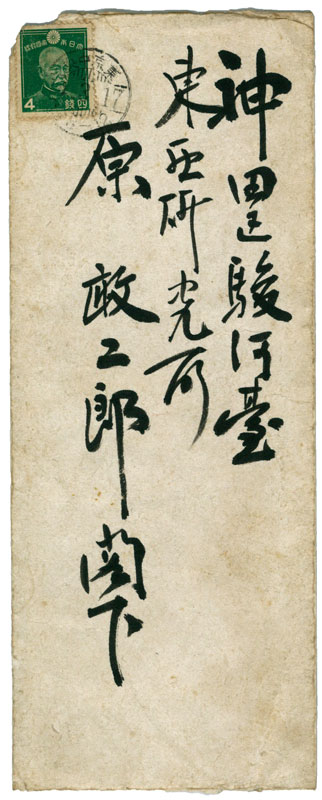 神田区駿河臺
東亜研究所
原 敢二郎 閣下
大日本帝國郵便
4 錢四
17